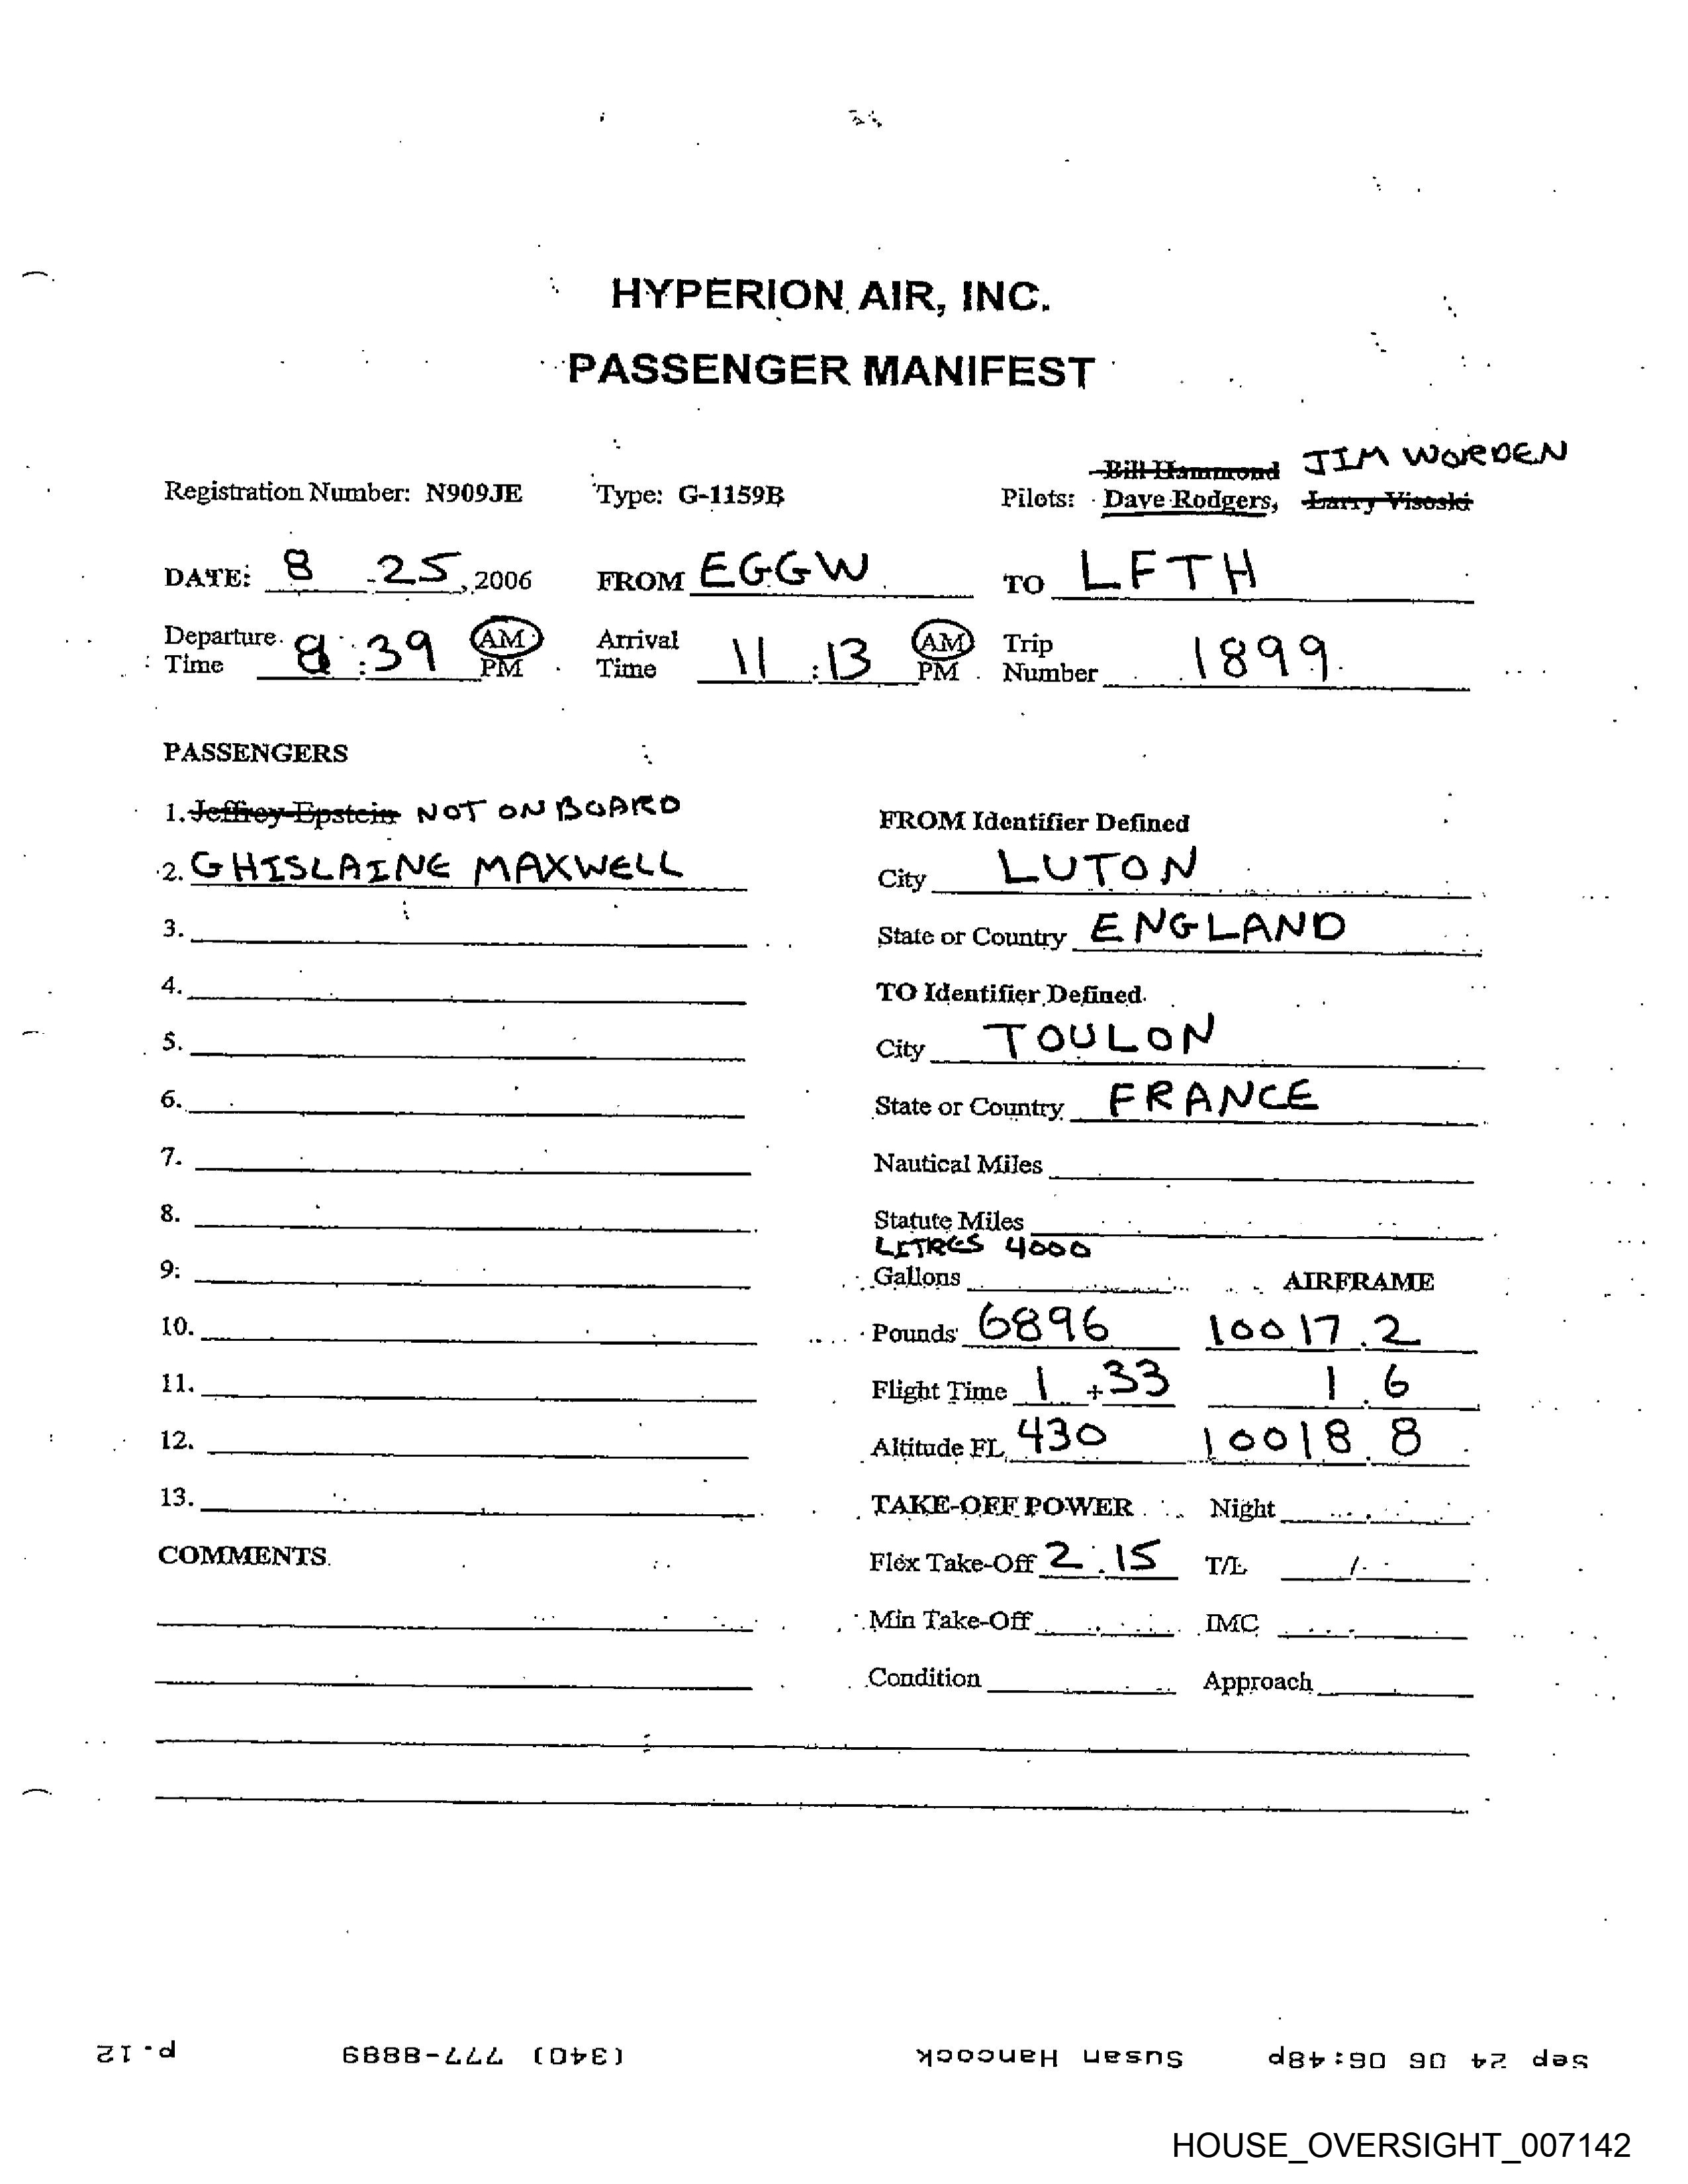 HYPERION AIR, INC.
PASSENGER MANIFEST
Bill Hammond JIM WORDEN
Registration Number: N909JE Type: G-1159B Pilots: Dave Rodgers, Larry Visoski
DATE: 8 25, 2006 FROM EGGW TO LFTH
Departure Time 8:39 AM PM Arrival Time 11:13 AM PM Trip Number 1899
PASSENGERS
1. Jeffrey Epstein NOT ON BOARD
2. GHISLAINE MAXWELL
3.
4.
5.
6.
7.
8.
9.
10.
11.
12.
13.
COMMENTS
FROM Identifier Defined
City LUTON
State or Country ENGLAND
TO Identifier Defined
City TOULON
State or Country FRANCE
Nautical Miles
Statute Miles
LITRES 4000
Gallons AIRFRAME
Pounds 6896 10017.2
Flight Time 1+33 1.6
Altitude FL 430 10018.8
TAKE-OFF POWER Night
Flex Take-Off 2.15 T/L /
Min Take-Off IMC
Condition Approach
Sep 24 06 06:48p Susan Hancock (340) 777-8889 p.12
HOUSE_OVERSIGHT_007142